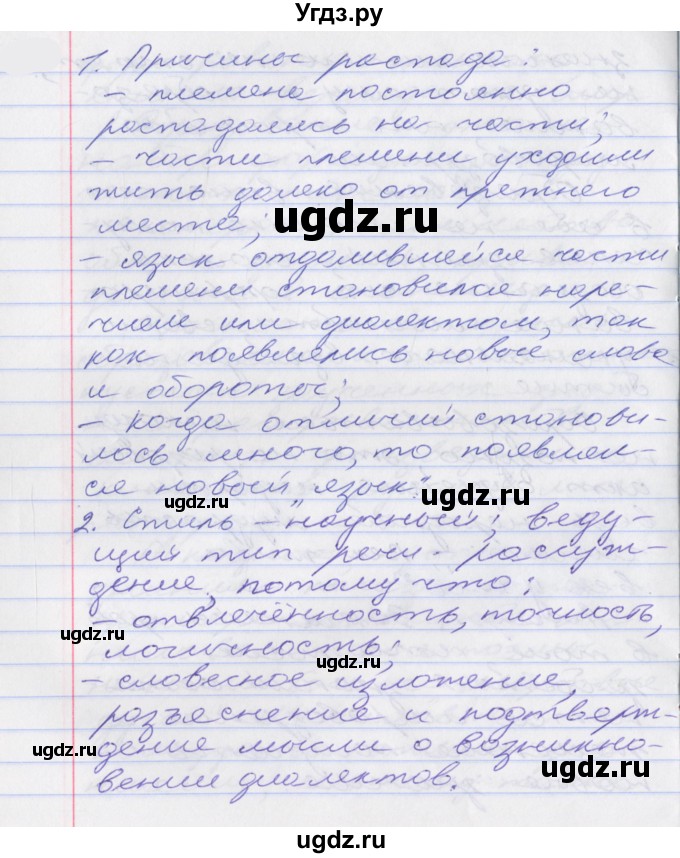 Угдз.ру
1. Причины распада:
- племена постоянно
распадались на части;
- части племени уходили
жить далеко от прежнего
места;
ugdz.ru
- язык отдалившейся части
племени становился наре-
чием или диалектом, так
как появлялись новые слова
и обороты;
- когда отличий станови-
лось много, то появлял-
ся новый язык.
ugdz.ru
2. Стиль - научный; веду-
щий тип речи - рассуж-
дение, потому что:
- отвлечённость, точность,
ugdz.ru
логичность;
ugdz.ru
- словесное изложение,
разъяснение и подтверж-
дение мысли о возникно-
вении диалектов.
ugdz.ru
ugdz.ru